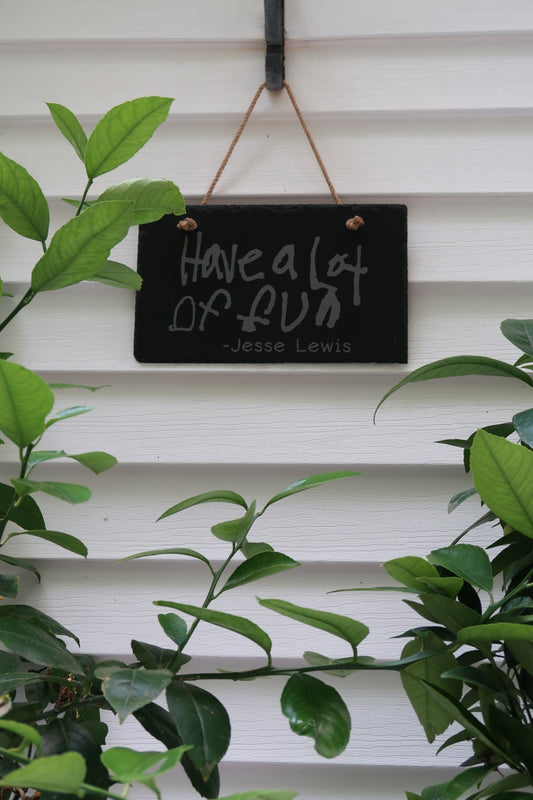 Have a Lot
Of fun
-Jesse Lewis